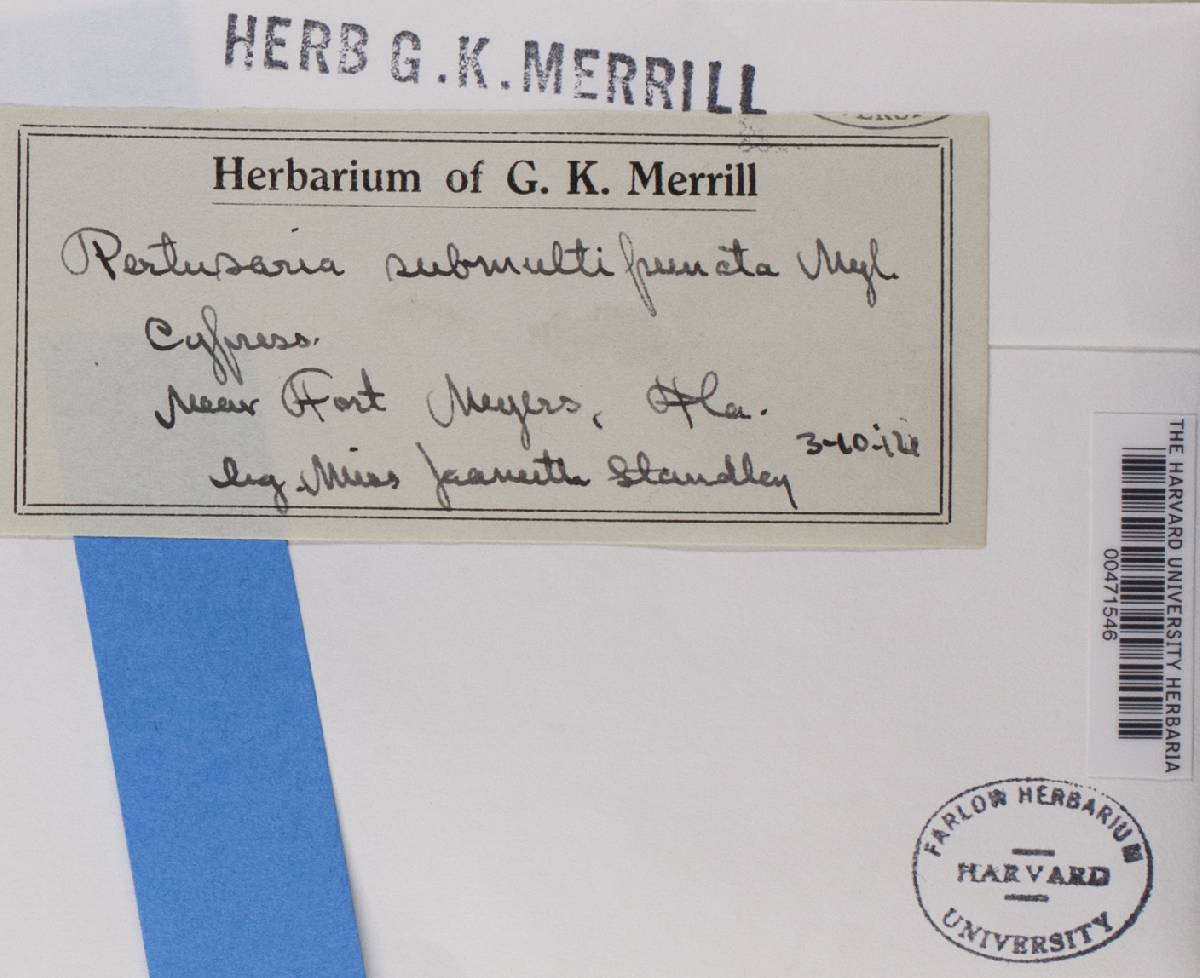 HERB G.K.MERRILL
Herbarium of G. K. Merrill
Pertusaria submultipuncta Nyl.
Cypress.
Near Fort Meyers, Fla.
3-10-
leg. Miss Standley
THE HARVARD UNIVERSITY HERBARIA
00471546
FARLOW HERBARIUM
HARVARD
UNIVERSITY